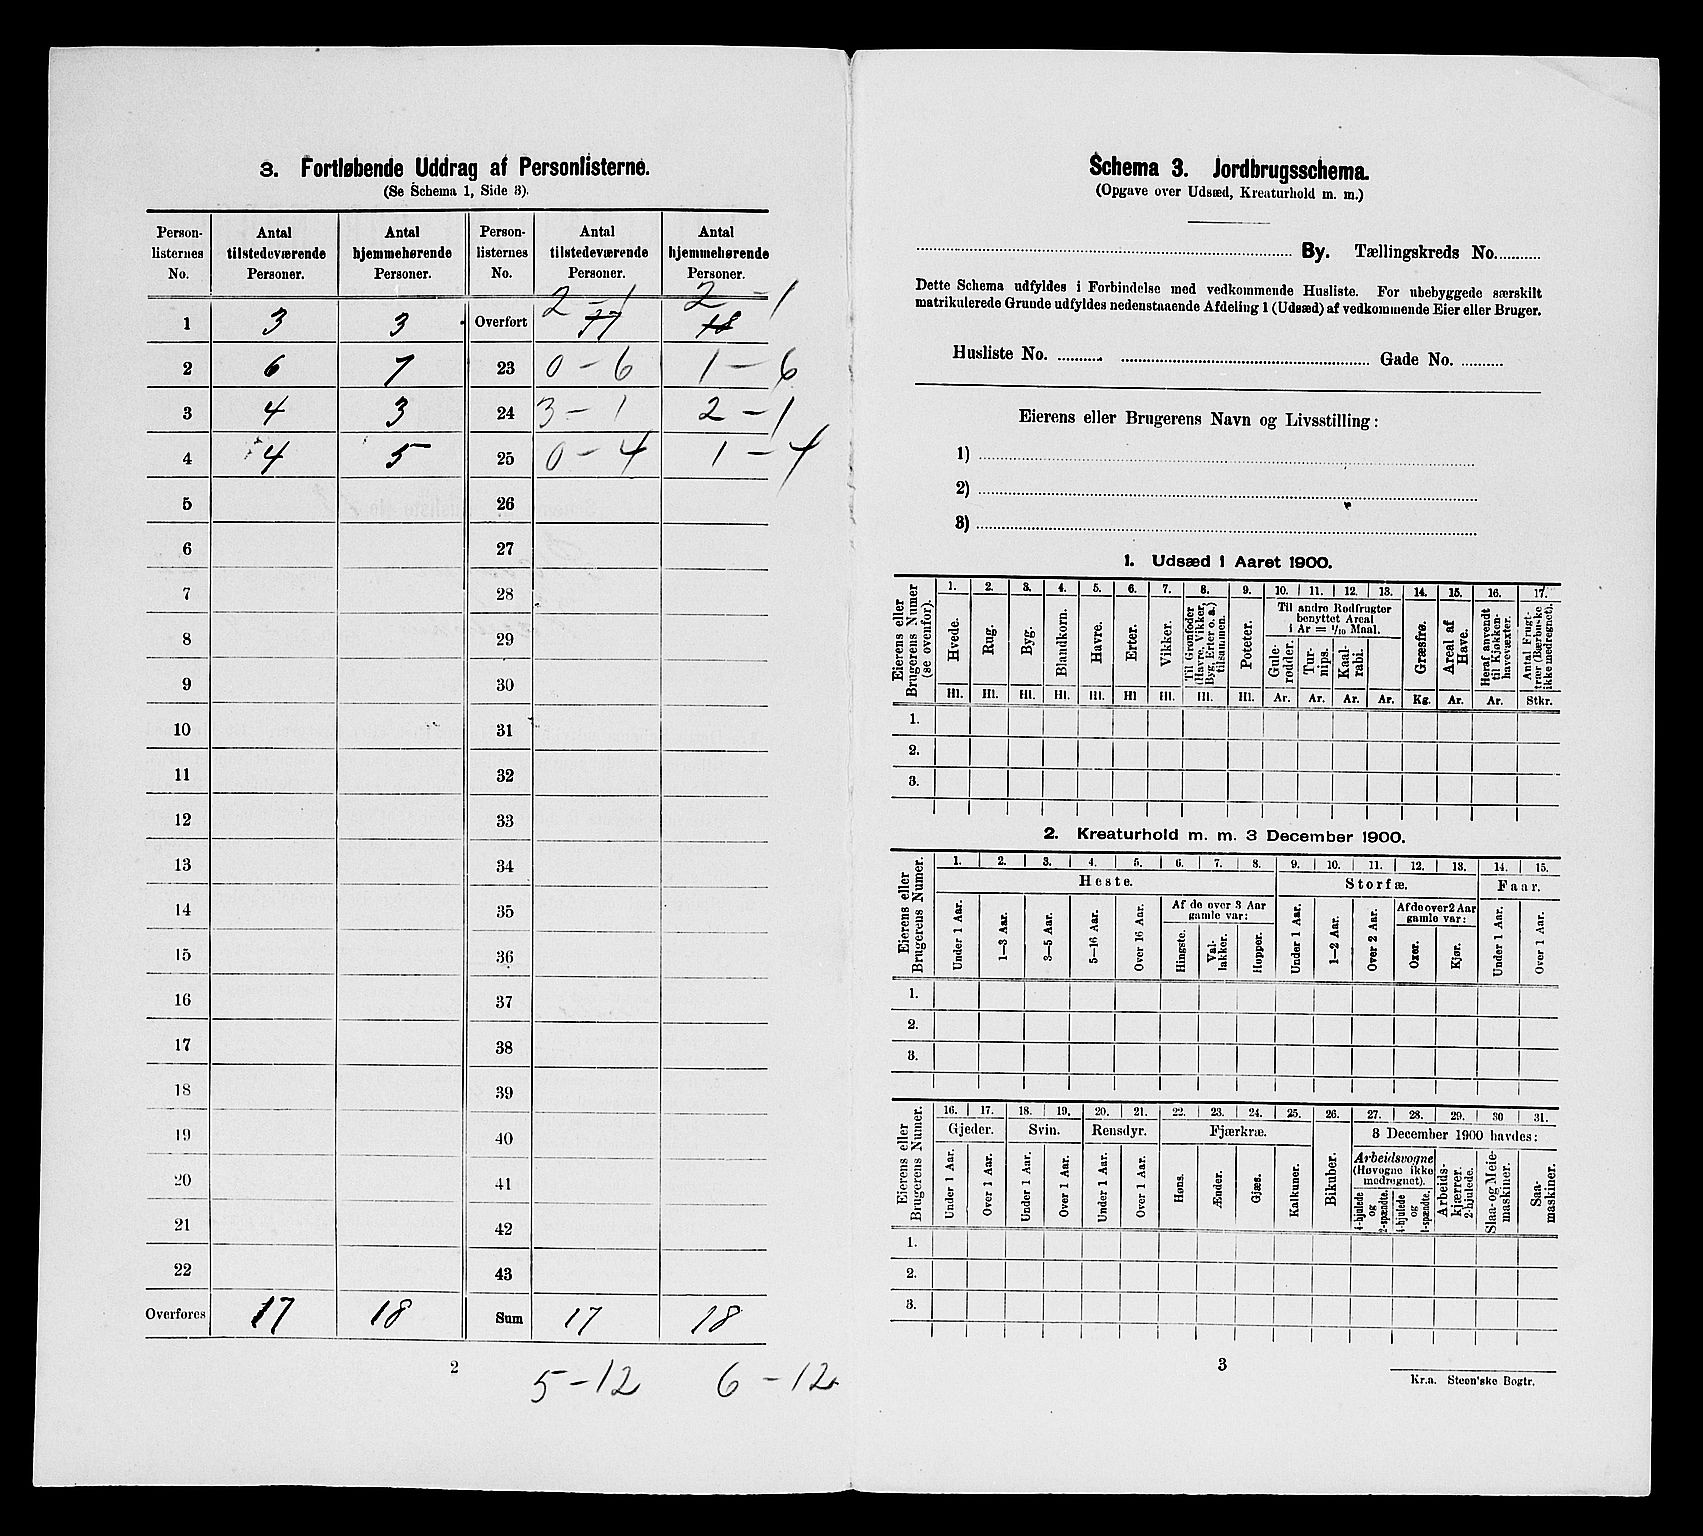 3. Fortløbende Uddrag af Personlisterne.
(Se Schema 1, Side 3).
Person-listernes No. | Antal tilstedeværende Personer. | Antal hjemmehørende Personer. | Person-listernes No. | Antal tilstedeværende Personer. | Antal hjemmehørende Personer.
1 | 3 | 3 | Overført | 2 – 1 17 | 2 – 1 18
2 | 6 | 7 | 23 | 0 – 6 | 1 – 6
3 | 4 | 3 | 24 | 3 – 1 | 2 – 1
4 | 4 | 5 | 25 | 0 – 4 | 1 – 4
5 | 26
6 | 27
7 | 28
8 | 29
9 | 30
10 | 31
11 | 32
12 | 33
13 | 34
14 | 35
15 | 36
16 | 37
17 | 38
18 | 39
19 | 40
20 | 41
21 | 42
22 | 43
Overføres | 17 | 18 | Sum | 17 | 18
2
5 – 12 6 – 12
Schema 3. Jordbrugsschema.
(Opgave over Udsæd, Kreaturhold m. m.)
By. Tællingskreds No.
Dette Schema udfyldes i Forbindelse med vedkommende Husliste. For ubebyggede særskilt
matrikulerede Grunde udfyldes nedenstaaende Afdeling 1 (Udsæd) af vedkommende Eier eller Bruger.
Husliste No. Gade No.
Eierens eller Brugerens Navn og Livsstilling:
1)
2)
3)
1. Udsæd i Aaret 1900.
Eierens eller Brugerens Numer (se ovenfor).
1. 2. 3. 4. 5. 6. 7. 8. 9. 10. 11. 12. 13. 14. 15. 16. 17.
Hvede. Rug. Byg. Blandkorn. Havre. Erter. Vikker. Til Grønfoder (Havre, Vikker, Byg, Erter o. a.) tilsammen. Poteter.
Til andre Rodfrugter
benyttet Areal
i Ar = 1/10 Maal.
Gule-rødder. Tur-nips. Kaal-rabi. Græsfrø. Areal af Have. Heraf anvendt til Kjøkken-havevæxter. Antal Frugt-trær (Bærbuske ikke medregnet).
Hl. Hl. Hl. Hl. Hl. Hl Hl. Hl. Hl. Ar. Ar. Ar. Ar. Kg. Ar. Ar. Stkr.
1.
2.
3.
2. Kreaturhold m. m. 3 December 1900.
Eierens eller Brugerens Numer.
1. 2. 3. 4. 5. 6. 7. 8. 9. 10. 11. 12. 13. 14. 15.
Heste. Storfæ. Faar.
Under 1 Aar. 1–3 Aar. 3–5 Aar. 5–16 Aar. Over 16 Aar.
Af de over 3 Aar
gamle var:
Hingste. Val-lakker. Hopper.
Under 1 Aar. 1–2 Aar. Over 2 Aar.
Af de over 2 Aar
gamle var:
Oxer. Kjør.
Under 1 Aar. Over 1 Aar.
1.
2.
3.
Eierens eller Brugerens Numer.
16. 17. 18. 19. 20. 21. 22. 23. 24. 25. 26. 27. 28. 29. 30 31.
Gjeder. Svin. Rensdyr. Fjærkræ. Bikuber. 3 December 1900 havdes:
Under 1 Aar. Over 1 Aar. Under 1 Aar. Over 1 Aar. Under 1 Aar. Over 1 Aar. Høns. Ænder. Gjæs. Kalkuner.
Arbeidsvogne
(Høvogne ikke
medregnet).
4-hjulede og 2-spændte. 4-hjulede og 1-spændte. Arbeids-kjærrer. 2-hjulede. Slaa- og Meie-maskiner. Saa-maskiner.
1.
2.
3.
3
Kr.a. Steen'ske Bogtr.